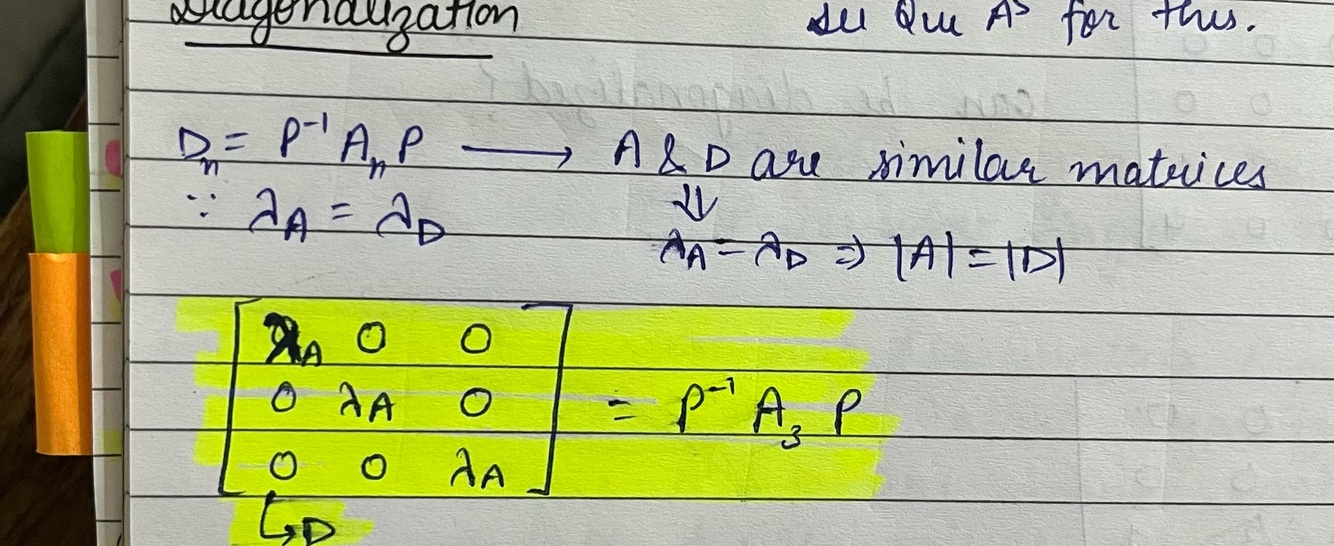 Diagonalization see Que A5 for this.
Dₙ = P⁻¹ Aₙ P ⟶ A & D are similar matrices
⇓
∵ λA = λD
λA = λD ⇒ |A| = |D|
λA 0 0
0 λA 0 = P⁻¹ A₃ P
0 0 λA
↳ D